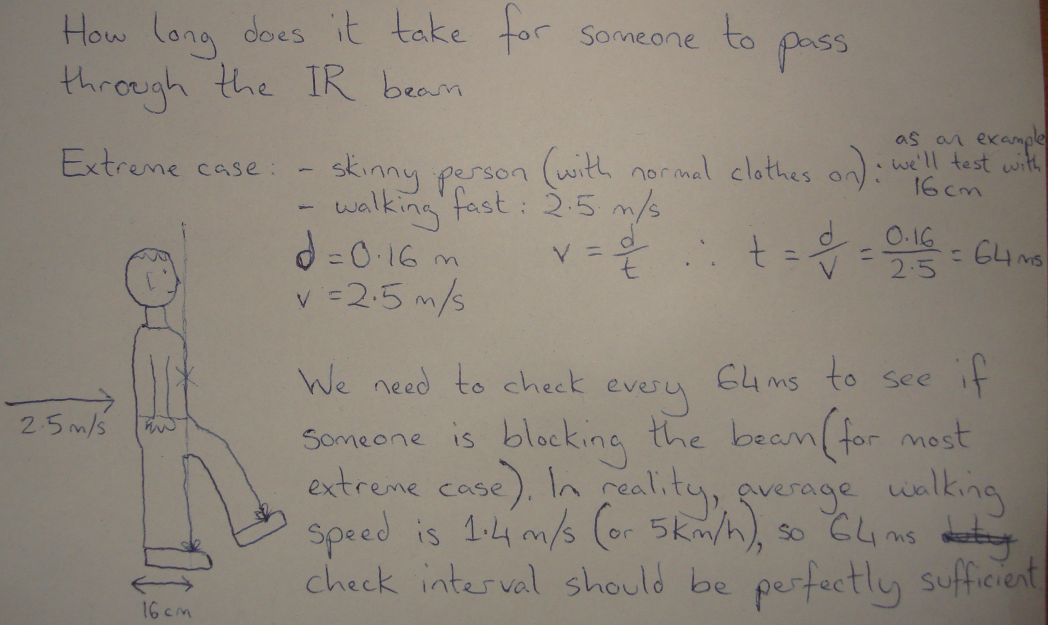 How long does it take for someone to pass
through the IR beam
as an example
Extreme case: - skinny person (with normal clothes on): we'll test with
16cm
- walking fast: 2.5 m/s
d = 0.16 m
v = d/t ∴ t = d/v = 0.16/2.5 = 64ms
v = 2.5 m/s
We need to check every 64ms to see if
someone is blocking the beam (for most
extreme case). In reality, average walking
speed is 1.4 m/s (or 5km/h), so 64ms
check interval should be perfectly sufficient
2.5m/s
16cm